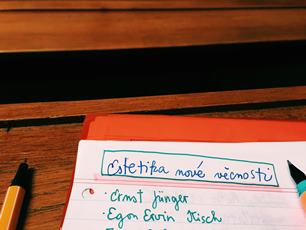 Estetika nové věcnosti
· Ernst Jünger
· Egon Ervin Kisch